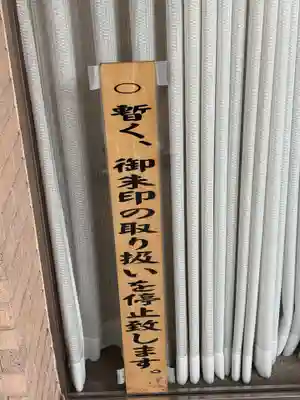 〇 暫く、御朱印の取り扱いを停止致します。